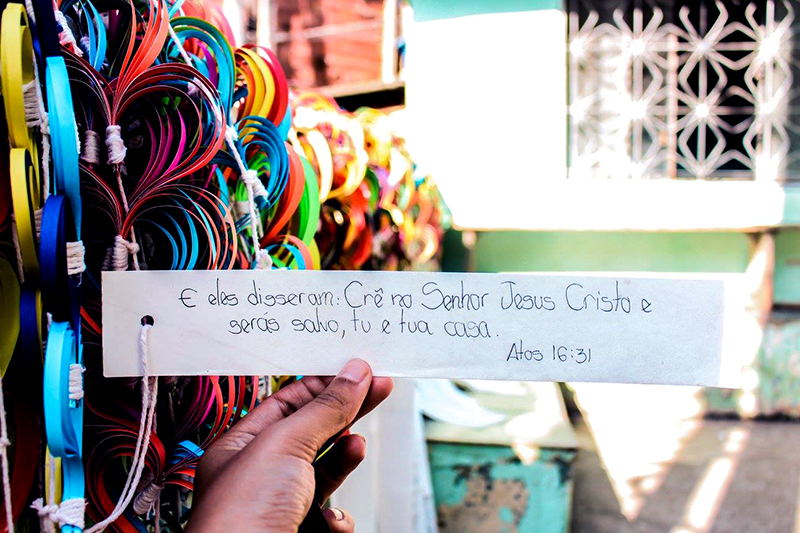 E eles disseram: Crê no Senhor Jesus Cristo e
serás salvo, tu e tua casa.
Atos 16:31